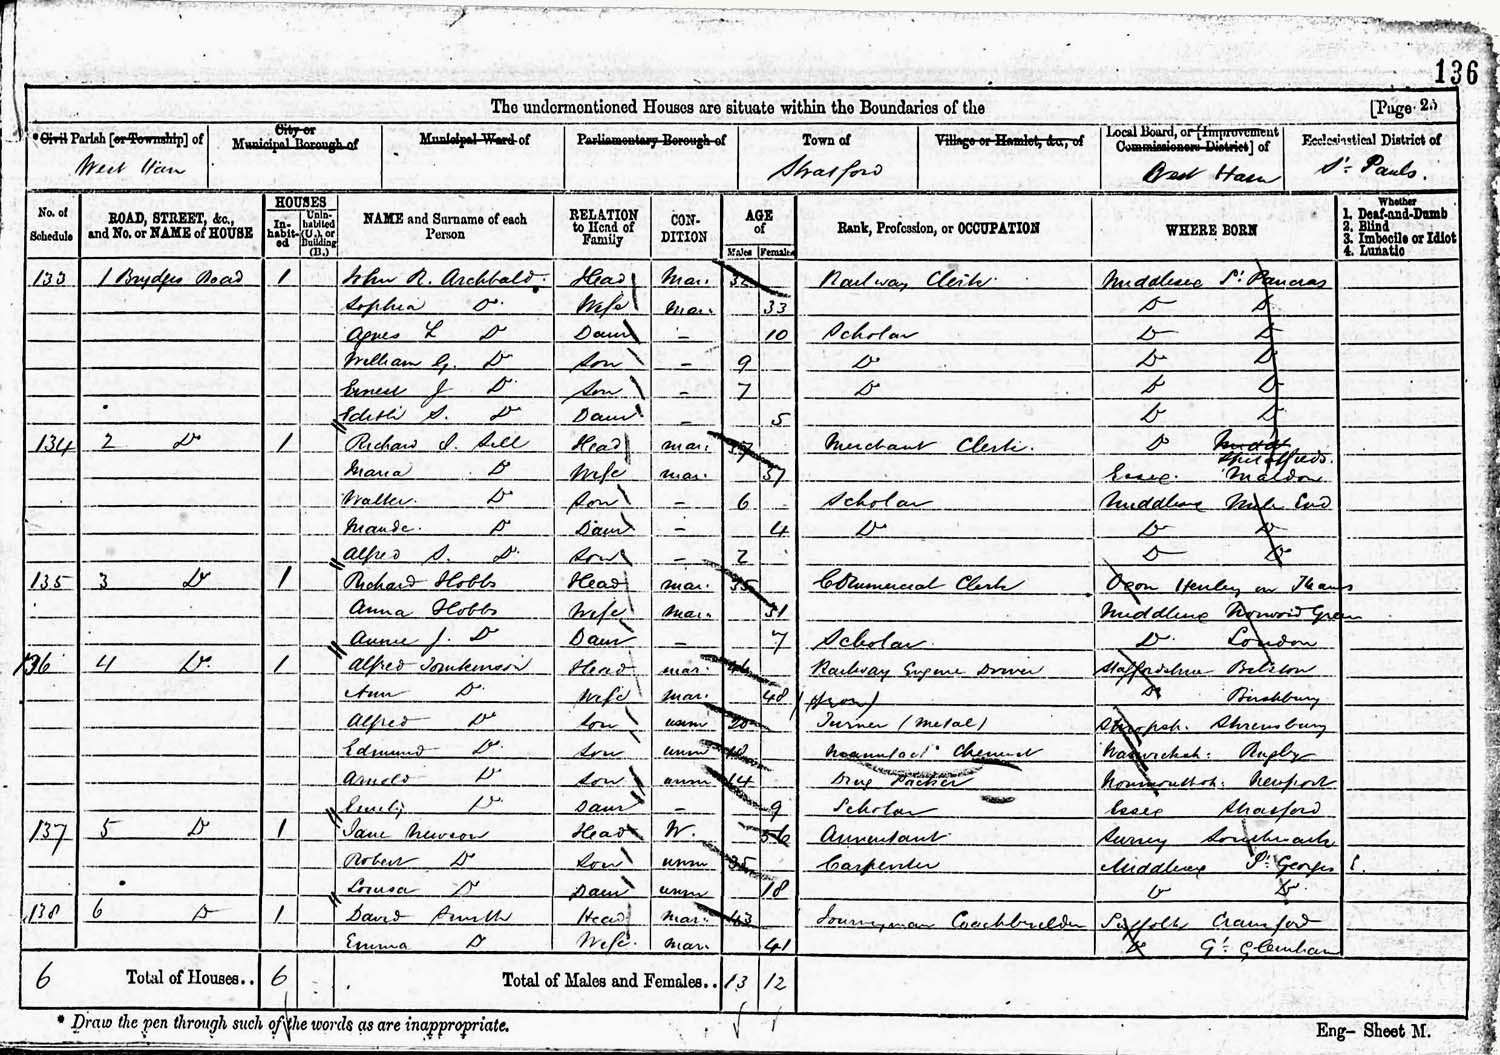 136
The undermentioned Houses are situate within the Boundaries of the [Page 25
* Civil Parish [or Township] of City or Municipal Borough of Municipal Ward of Parliamentary Borough of Town of Village or Hamlet, &c., of Local Board, or [Improvement Commissioners District] of Ecclesiastical District of
West Ham Stratford West Ham St. Pauls.
No. of Schedule ROAD, STREET, &c., and No. or NAME of HOUSE HOUSES In-habit-ed Unin-habited (U.), or Building (B.) NAME and Surname of each Person RELATION to Head of Family CON-DITION AGE of Males Females Rank, Profession, or OCCUPATION WHERE BORN Whether 1. Deaf-and-Dumb 2. Blind 3. Imbecile or Idiot 4. Lunatic
133 1 Brydges Road 1 John R. Archbald Head Mar. 32 Railway Clerk Middlesex St. Pancras
Sophia Do Wife Mar. 33 Do Do
Agnes L Do Daur - 10 Scholar Do Do
William G. Do Son - 9 Do Do Do
Ernest J Do Son - 7 Do Do Do
Edith S. Do Daur - 5 Do Do
134 2 Do 1 Richard Sell Head mar. 37 Merchant Clerk Do Spitalfields.
Maria Do Wife mar. 37 Essex Maldon
Walter Do Son - 6 Scholar Middlesex Mile End
Maude. Do Daur - 4 Do Do Do
Alfred S. Do Son - 2 Do Do
135 3 Do 1 Richard Hobbs Head mar. 35 Commercial Clerk Oxon Henley on Thames
Anna Hobbs Wife Mar. 31 Middlesex Norwood Green
Annie J. Do Daur - 7 Scholar. Do. London
136 4 Do 1 Alfred Tomkinson Head mar. Railway Engine Driver Staffordshire Bilston
Ann Do Wife Mar. 48 Do Bushbury
Alfred Do Son unm 20 Turner (Metal) Shropsh. Shrewsbury
Edmund Do Son unm 18 Manufact. Chemist Warwicksh: Rugby
Arnold Do Son unm 14 Drug Packer Monmouthsh: Newport
Emily Do Daur - 9 Scholar Essex Stratford
137 5 Do 1 Jane Newson Head W. 56 Annuitant Surrey Southwark
Robert Do Son unm 25 Carpenter Middlesex St. Georges E.
Louisa Do Daur unm 18 Do Do
138 6 Do 1 David Smith Head Mar. 43 Journeyman Coachbuilder Suffolk Cransford
Emma Do Wife. Mar. 41 Do Gt. Glemham
6 Total of Houses.. 6 Total of Males and Females.. 13 12
* Draw the pen through such of the words as are inappropriate.
Eng– Sheet M.